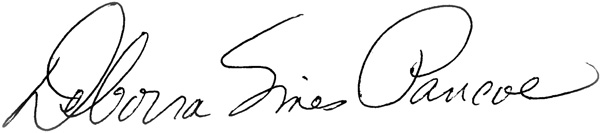 Deborra Sines Pancoe